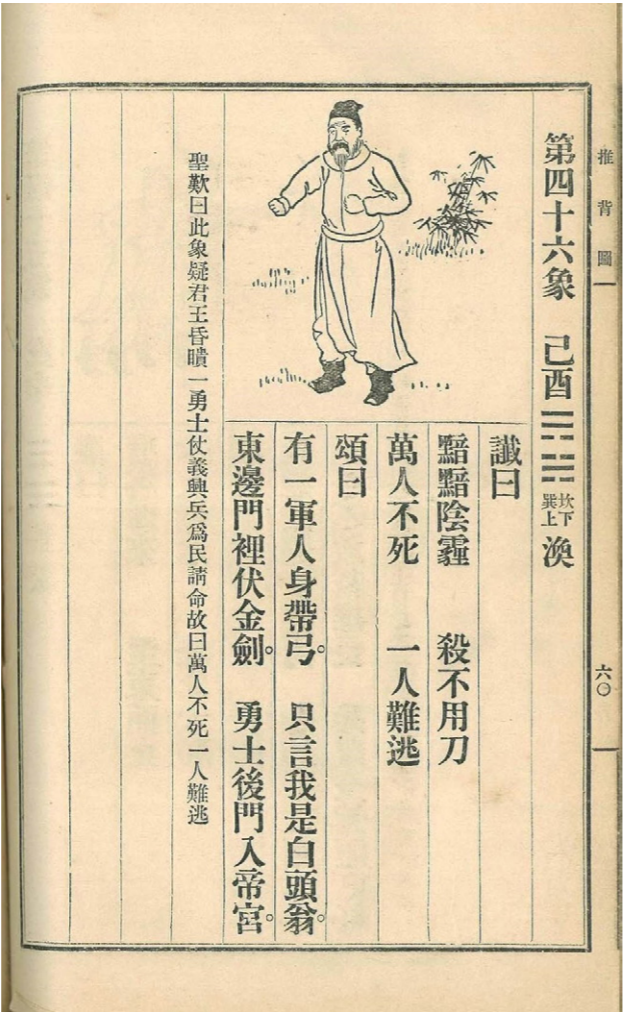 推背圖
六〇
第四十六象 己酉 ䷺ 坎下巽上 渙
讖曰
黯黯陰霾 殺不用刀
萬人不死 一人難逃
頌曰
有一軍人身帶弓。 只言我是白頭翁。
東邊門裡伏金劍。 勇士後門入帝宮。
聖歎曰此象疑君王昏瞶一勇士仗義興兵爲民請命故曰萬人不死一人難逃